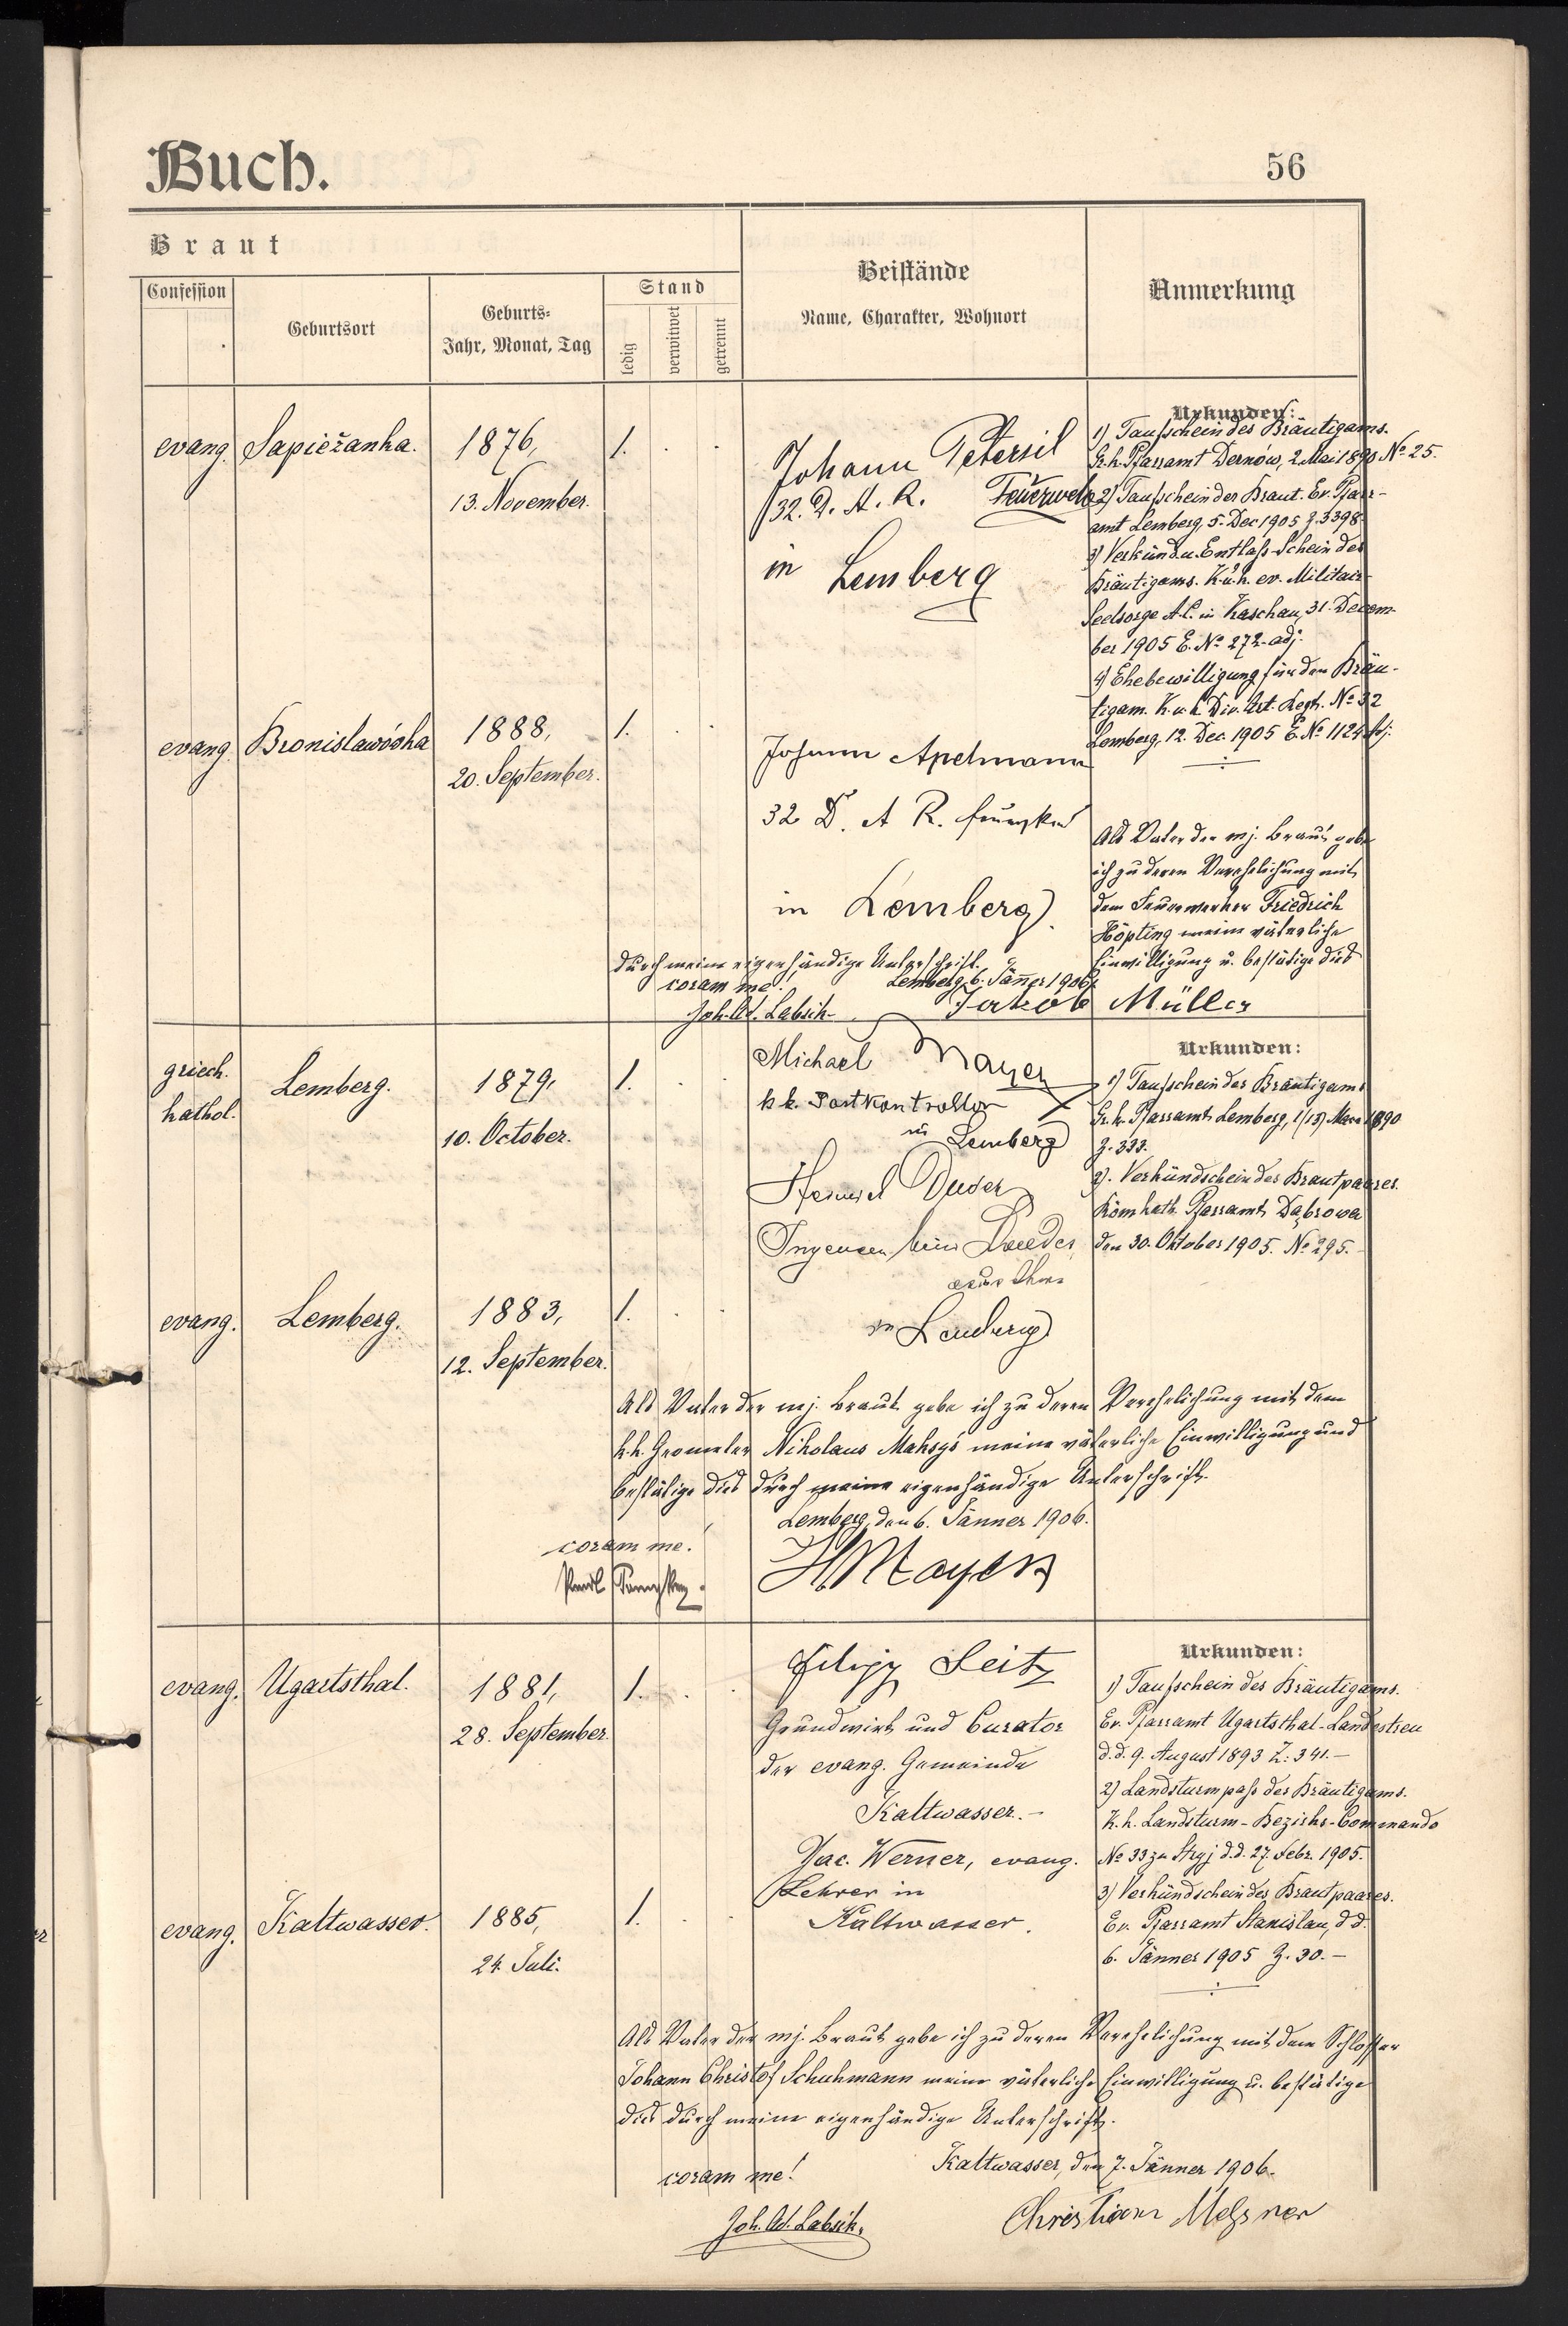 Buch.
56
Braut
Confession
Geburtsort
Geburts-
Jahr, Monat, Tag
Stand
ledig
verwitwet
getrennt
Beistände
Name, Charakter, Wohnort
Anmerkung
evang. Sapiežanka. 1876, 1.
13. November.
Johann Petersil
32. D. A. R. Feuerwerk
in Lemberg
Urkunden:
1) Taufschein des Bräutigams.
Gr. k. Pfarramt Dernów, 2. Mai 1890 No 25.
2) Taufschein der Braut. Ev. Pfarr-
amt Lemberg, 5. Dec 1905 Z. 3398.
3) Verkünd. u. Entlass-Schein des
Bräutigams. K. u. k. ev. Militair-
Seelsorge A. C. in Kaschau, 31. Decem-
ber 1905 E. No 272 adj.
4) Ehebewilligung für den Bräu-
tigam. K. u. k. Div. Art. Regt. No 32
Lemberg, 12. Dec. 1905 E. No 1124 Adj.
evang. Bronislawówka 1888, 1.
20. September.
Johann Apelmann
32 D. A R.
in Lemberg.
Als Vater der mj. Braut gebe
ich zu deren Verehelichung mit
dem Feuerwerker Friedrich
Höpting meine väterliche
Einwilligung u. bestätige dies
durch meine eigenhändige Unterschrift.
coram me! Lemberg, 6. Jänner 1906.
Joh. Ad. Labsik Jakob Müller
griech.
kathol.
Lemberg. 1879, 1.
10. October.
Michael Mayer
k. k. Postkontrollor
in Lemberg
in Lemberg
Urkunden:
1) Taufschein des Bräutigams
Gr. k. Pfarramt Lemberg, 1/13 März 1890
Z. 333.
2). Verkündschein des Brautpaares.
Röm. kath. Pfarramt Dąbrowa
den 30. Oktober 1905. No 295.
evang. Lemberg. 1883, 1.
12. September.
Als Vater der mj. Braut gebe ich zu deren Verehelichung mit dem
k. k. Geometer Nikolaus Maksyś meine väterliche Einwilligung und
bestätige dies durch meine eigenhändige Unterschrift.
Lemberg, den 6. Jänner 1906.
coram me!
HMayer
evang. Ugartsthal. 1881, 1.
28. September.
Filipp Seitz
Grundwirt und Curator
der evang. Gemeinde
Kaltwasser.
Jac. Werner, evang.
Lehrer in
Kaltwasser.
Urkunden:
1) Taufschein des Bräutigams.
Ev. Pfarramt Ugartsthal-Landestreu
d. d. 9. August 1893 Z. 341.
2) Landsturmpass des Bräutigams.
K. k. Landsturm-Bezirks-Commando
No 33 zu Stryj d. d. 27. Febr. 1905.
3) Verkündschein des Brautpaares.
Ev. Pfarramt Stanislau, d d.
6. Jänner 1905 Z. 30.
evang. Kaltwasser. 1885, 1.
24. Juli.
Als Vater der mj. Braut gebe ich zu deren Verehelichung mit dem Schlosser
Johann Christof Schuhmann meine väterliche Einwilligung u. bestätige
dies durch meine eigenhändige Unterschrift.
Kaltwasser, den 7. Jänner 1906.
coram me!
Joh. Ad. Labsik.
Christian